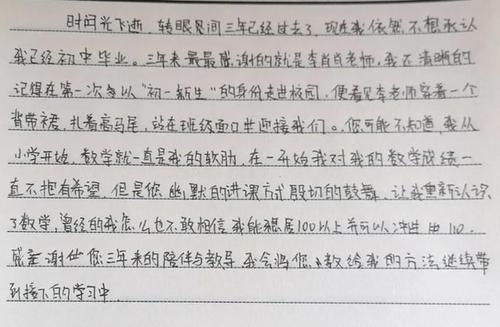 时间光飞逝，转眼居间三年已经过去了，现在我依然不想承认
我已经初中毕业。三年来最最感谢的就是李肖肖老师，我不清晰的
记得在第一次身以“初一新生”的身份走进校园，便看见李老师穿着一个
背带裙，扎着高马尾，站在班级面口迎接我们。您可能不知道，我从
小学开始，数学就一直是我的软肋，在一开始我对我的数学成绩一
直不抱有希望，但是您幽默的讲课方式殷切的鼓舞，让我重新认识
了数学，曾经的我怎么也不敢相信我能稳居100以上并可以冲进110。
感谢您三年来的陪伴与教导，我会将您教给我的方法继续带
到接下的学习中